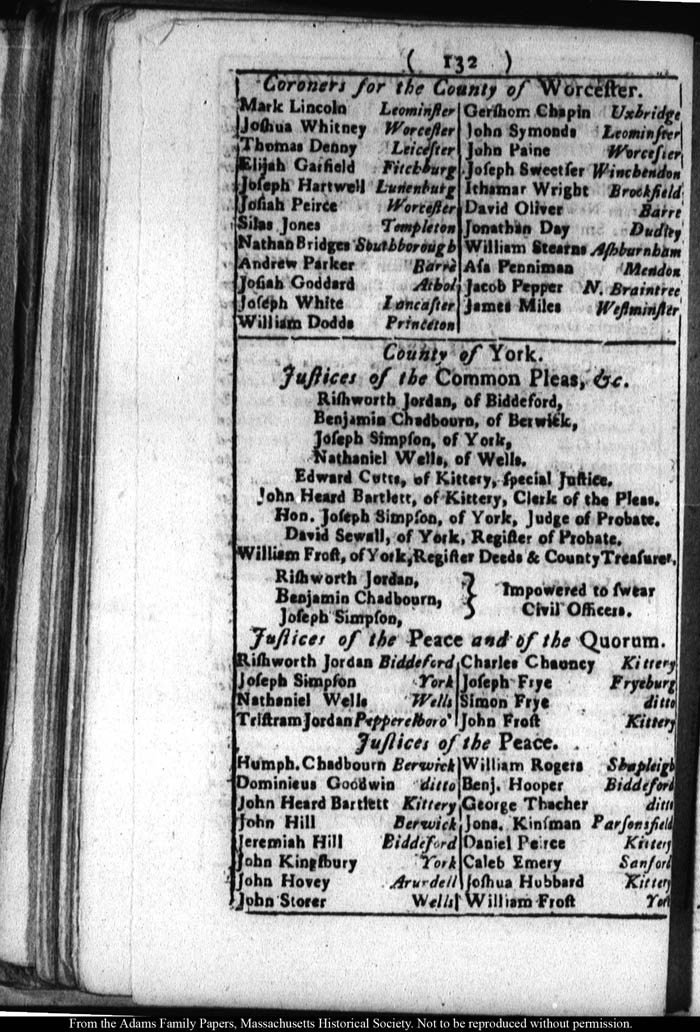 ( 132 )
Coroners for the County of Worceſter.
Mark Lincoln Leominſter
Joſhua Whitney Worceſter
Thomas Denny Leiceſter
Elijah Garfield Fitchburg
Joſeph Hartwell Lunenburg
Joſiah Peirce Worceſter
Silas Jones Templeton
Nathan Bridges Southborough
Andrew Parker Barre
Joſiah Goddard Athol
Joſeph White Lancaſter
William Dodds Princeton
Gerſhom Chapin Uxbridge
John Symonds Leominſter
John Paine Worceſter
Joſeph Sweetſer Winchendon
Ichamar Wright Brookfield
David Oliver Barre
Jonathan Day Dudley
William Stearns Aſhburnham
Aſa Penniman Mendon
Jacob Pepper N. Braintree
James Miles Weſtminſter
County of York.
Juſtices of the Common Pleas, &c.
Riſhworth Jordan, of Biddeford,
Benjamin Chadbourn, of Berwick,
Joſeph Simpſon, of York,
Nathaniel Wells, of Wells.
Edward Cutts, of Kittery, ſpecial Juſtice.
John Heard Bartlett, of Kittery, Clerk of the Pleas.
Hon. Joſeph Simpſon, of York, Judge of Probate.
David Sewall, of York, Regiſter of Probate.
William Froſt, of York, Regiſter Deeds & County Treaſurer.
Riſhworth Jordan,
Benjamin Chadbourn,
Joſeph Simpſon,
} Impowered to ſwear
Civil Officers.
Juſtices of the Peace and of the Quorum.
Riſhworth Jordan Biddeford
Joſeph Simpſon York
Nathaniel Wells Wells
Triſtram Jordan Pepperelboro'
Charles Chauncy Kittery
Joſeph Frye Fryeburg
Simon Frye ditto
John Froſt Kittery
Juſtices of the Peace.
Humph. Chadbourn Berwick
Dominicus Goodwin ditto
John Heard Bartlett Kittery
John Hill Berwick
Jeremiah Hill Biddeford
John Kingſbury York
John Hovey Arundell
John Storer Wells
William Rogers Shapleigh
Benj. Hooper Biddeford
George Thacher ditto
Jona. Kinſman Parſonsfield
Daniel Peirce Kittery
Caleb Emery Sanford
Joſhua Hubbard Kittery
William Froſt York
From the Adams Family Papers, Massachusetts Historical Society. Not to be reproduced without permission.